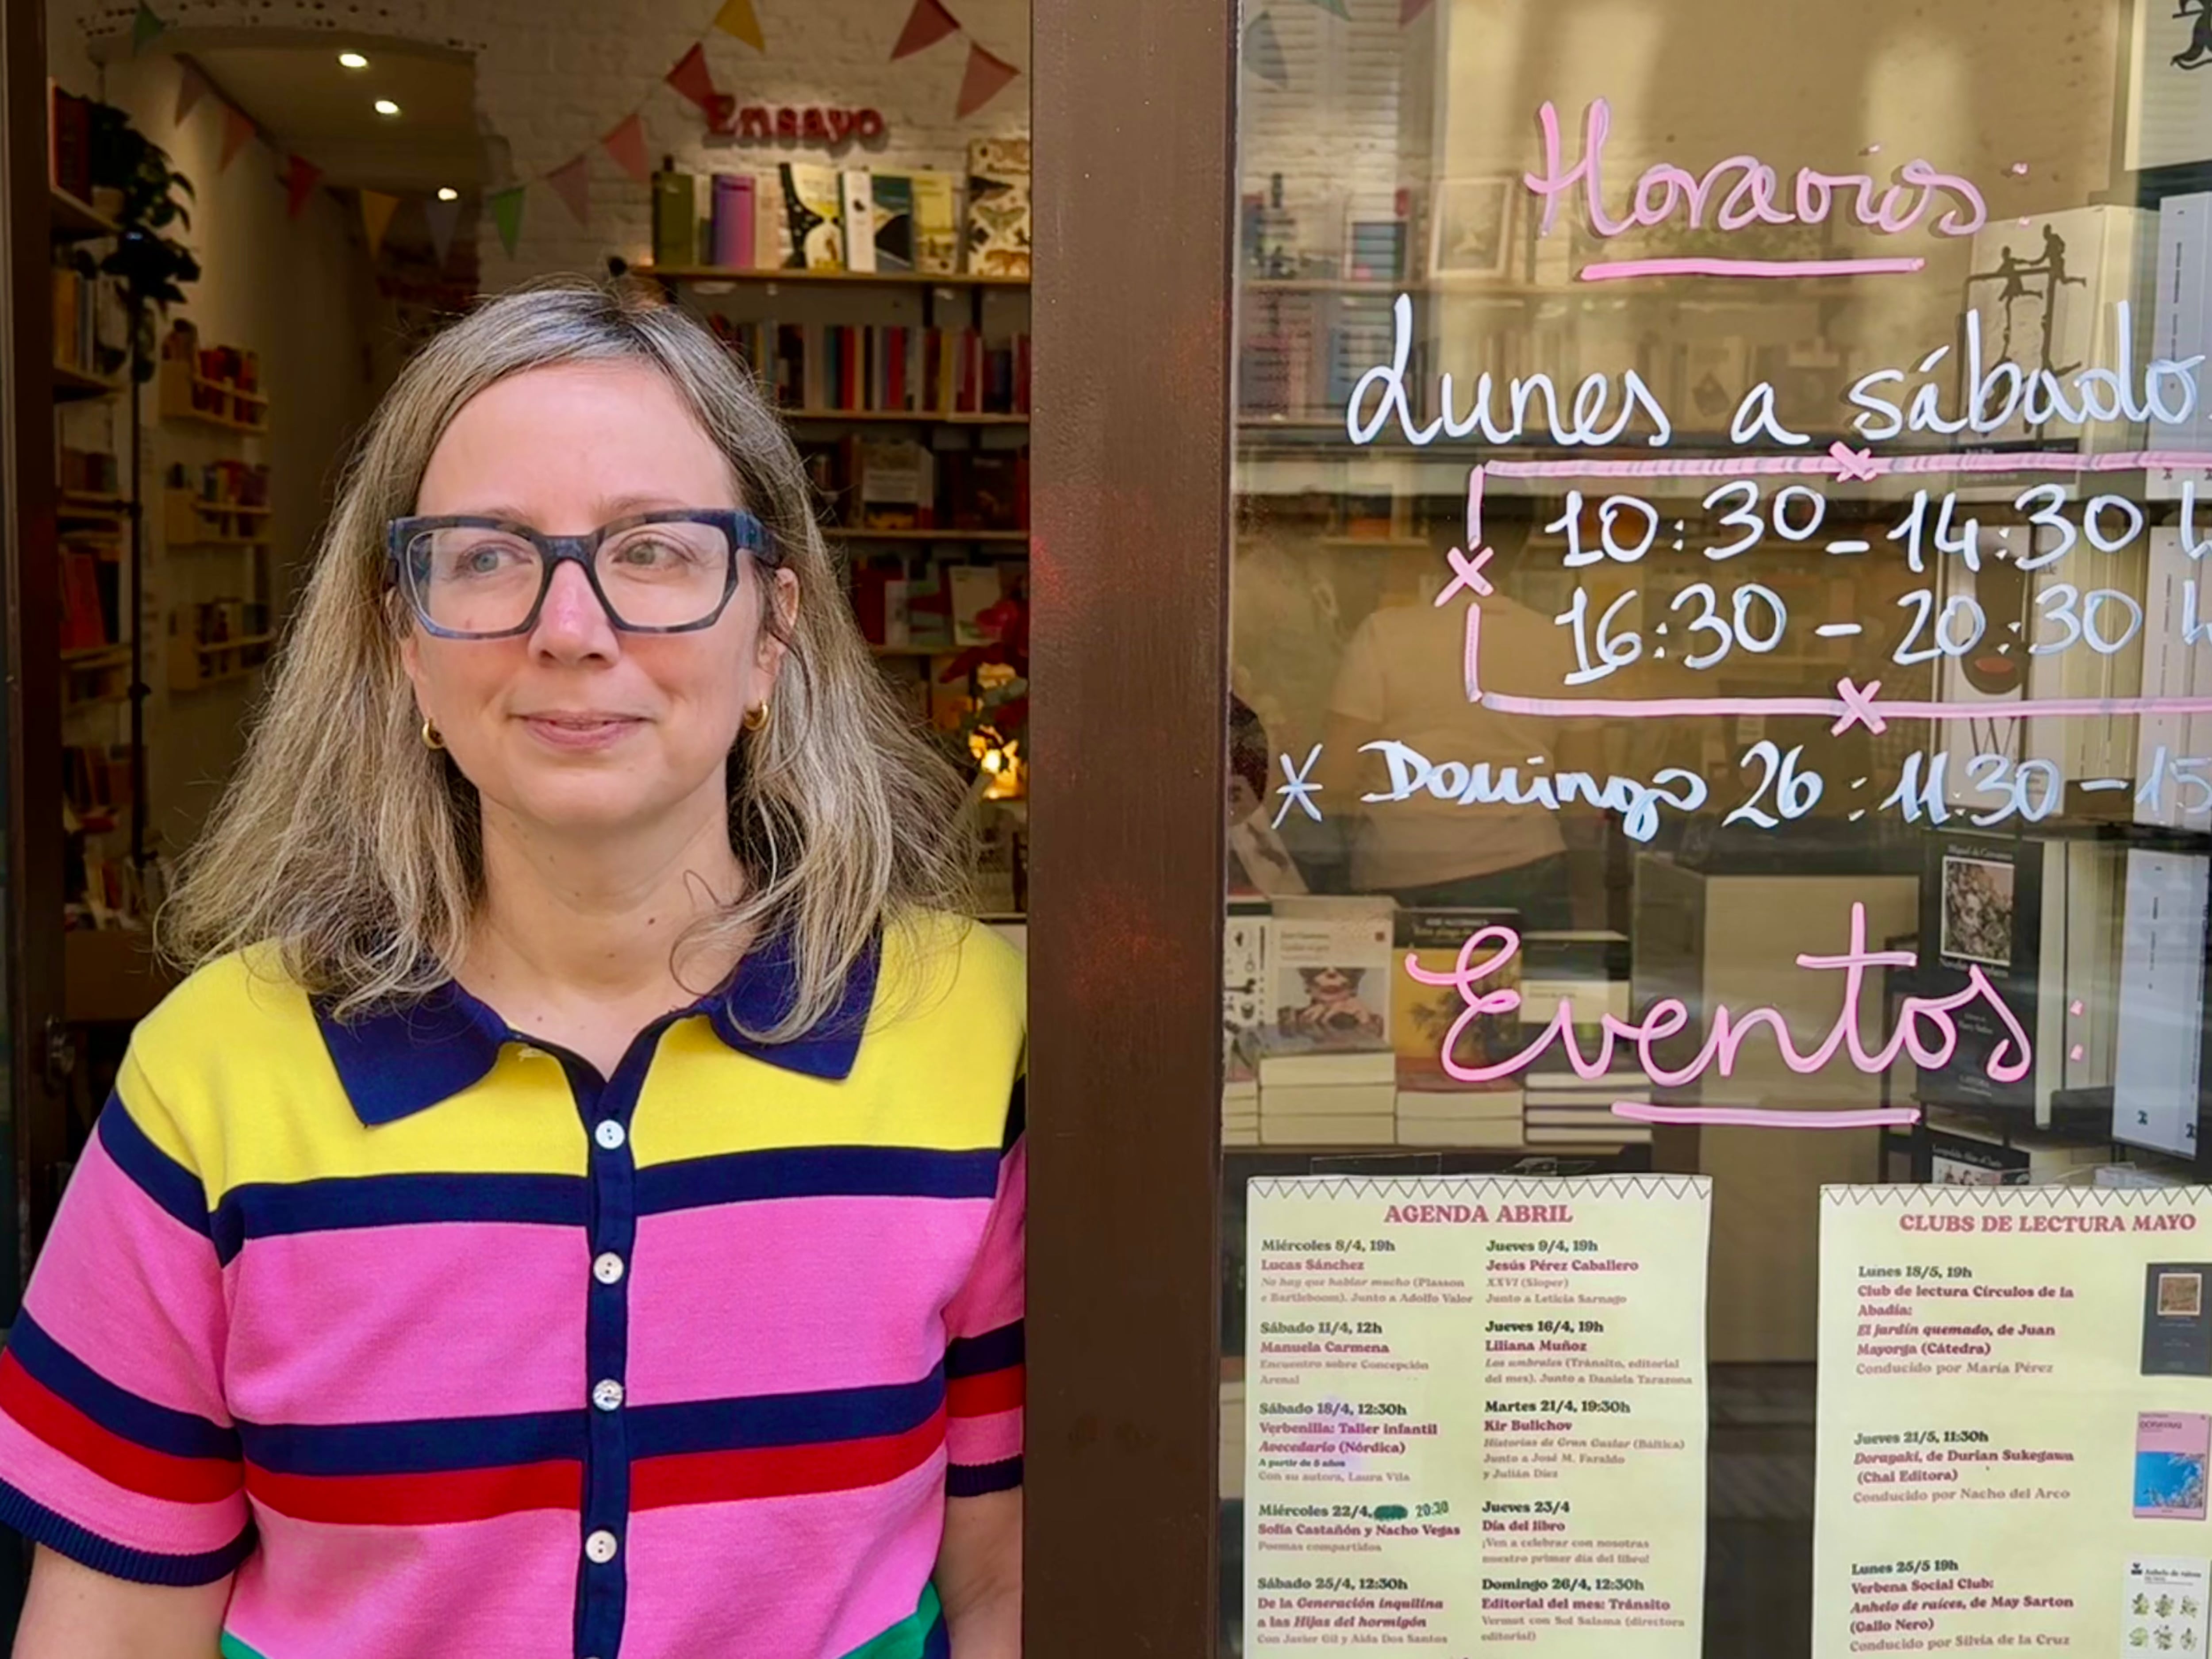 Ensayo
Horarios:
Lunes a sábado
10:30 - 14:30 h
16:30 - 20:30 h
* Domingo 26: 11.30 - 15
Eventos:
AGENDA ABRIL
Miércoles 8/4, 19h
Lucas Sánchez
No hay que hablar mucho (Plasson
e Bartleboom). Junto a Adolfo Valor
Sábado 11/4, 12h
Manuela Carmena
Encuentro sobre Concepción
Arenal
Sábado 18/4, 12:30h
Verbenilla: Taller infantil
Avecedario (Nórdica)
A partir de 5 años
Con su autora, Laura Vila
Miércoles 22/4, 20:30
Sofía Castañón y Nacho Vegas
Poemas compartidos
Sábado 25/4, 12:30h
De la Generación inquilina
a las Hijas del hormigón
Con Javier Gil y Aida Dos Santos
Jueves 9/4, 19h
Jesús Pérez Caballero
XXVI (Sloper)
Junto a Leticia Sarnago
Jueves 16/4, 19h
Liliana Muñoz
Los umbrales (Tránsito, editorial
del mes). Junto a Daniela Tarazona
Martes 21/4, 19:30h
Kir Bulichov
Historias de Gran Guslar (Báltica)
Junto a José M. Faraldo
y Julián Díez
Jueves 23/4
Día del libro
¡Ven a celebrar con nosotras
nuestro primer día del libro!
Domingo 26/4, 12:30h
Editorial del mes: Tránsito
Vermut con Sol Salama (directora
editorial)
CLUBS DE LECTURA MAYO
Lunes 18/5, 19h
Club de lectura Círculos de la
Abadía:
El jardín quemado, de Juan
Mayorga (Cátedra)
Conducido por María Pérez
Jueves 21/5, 11:30h
Dorayaki, de Durian Sukegawa
(Chai Editora)
Conducido por Nacho del Arco
Lunes 25/5 19h
Verbena Social Club:
Anhelo de raíces, de May Sarton
(Gallo Nero)
Conducido por Silvia de la Cruz
Miguel de Cervantes